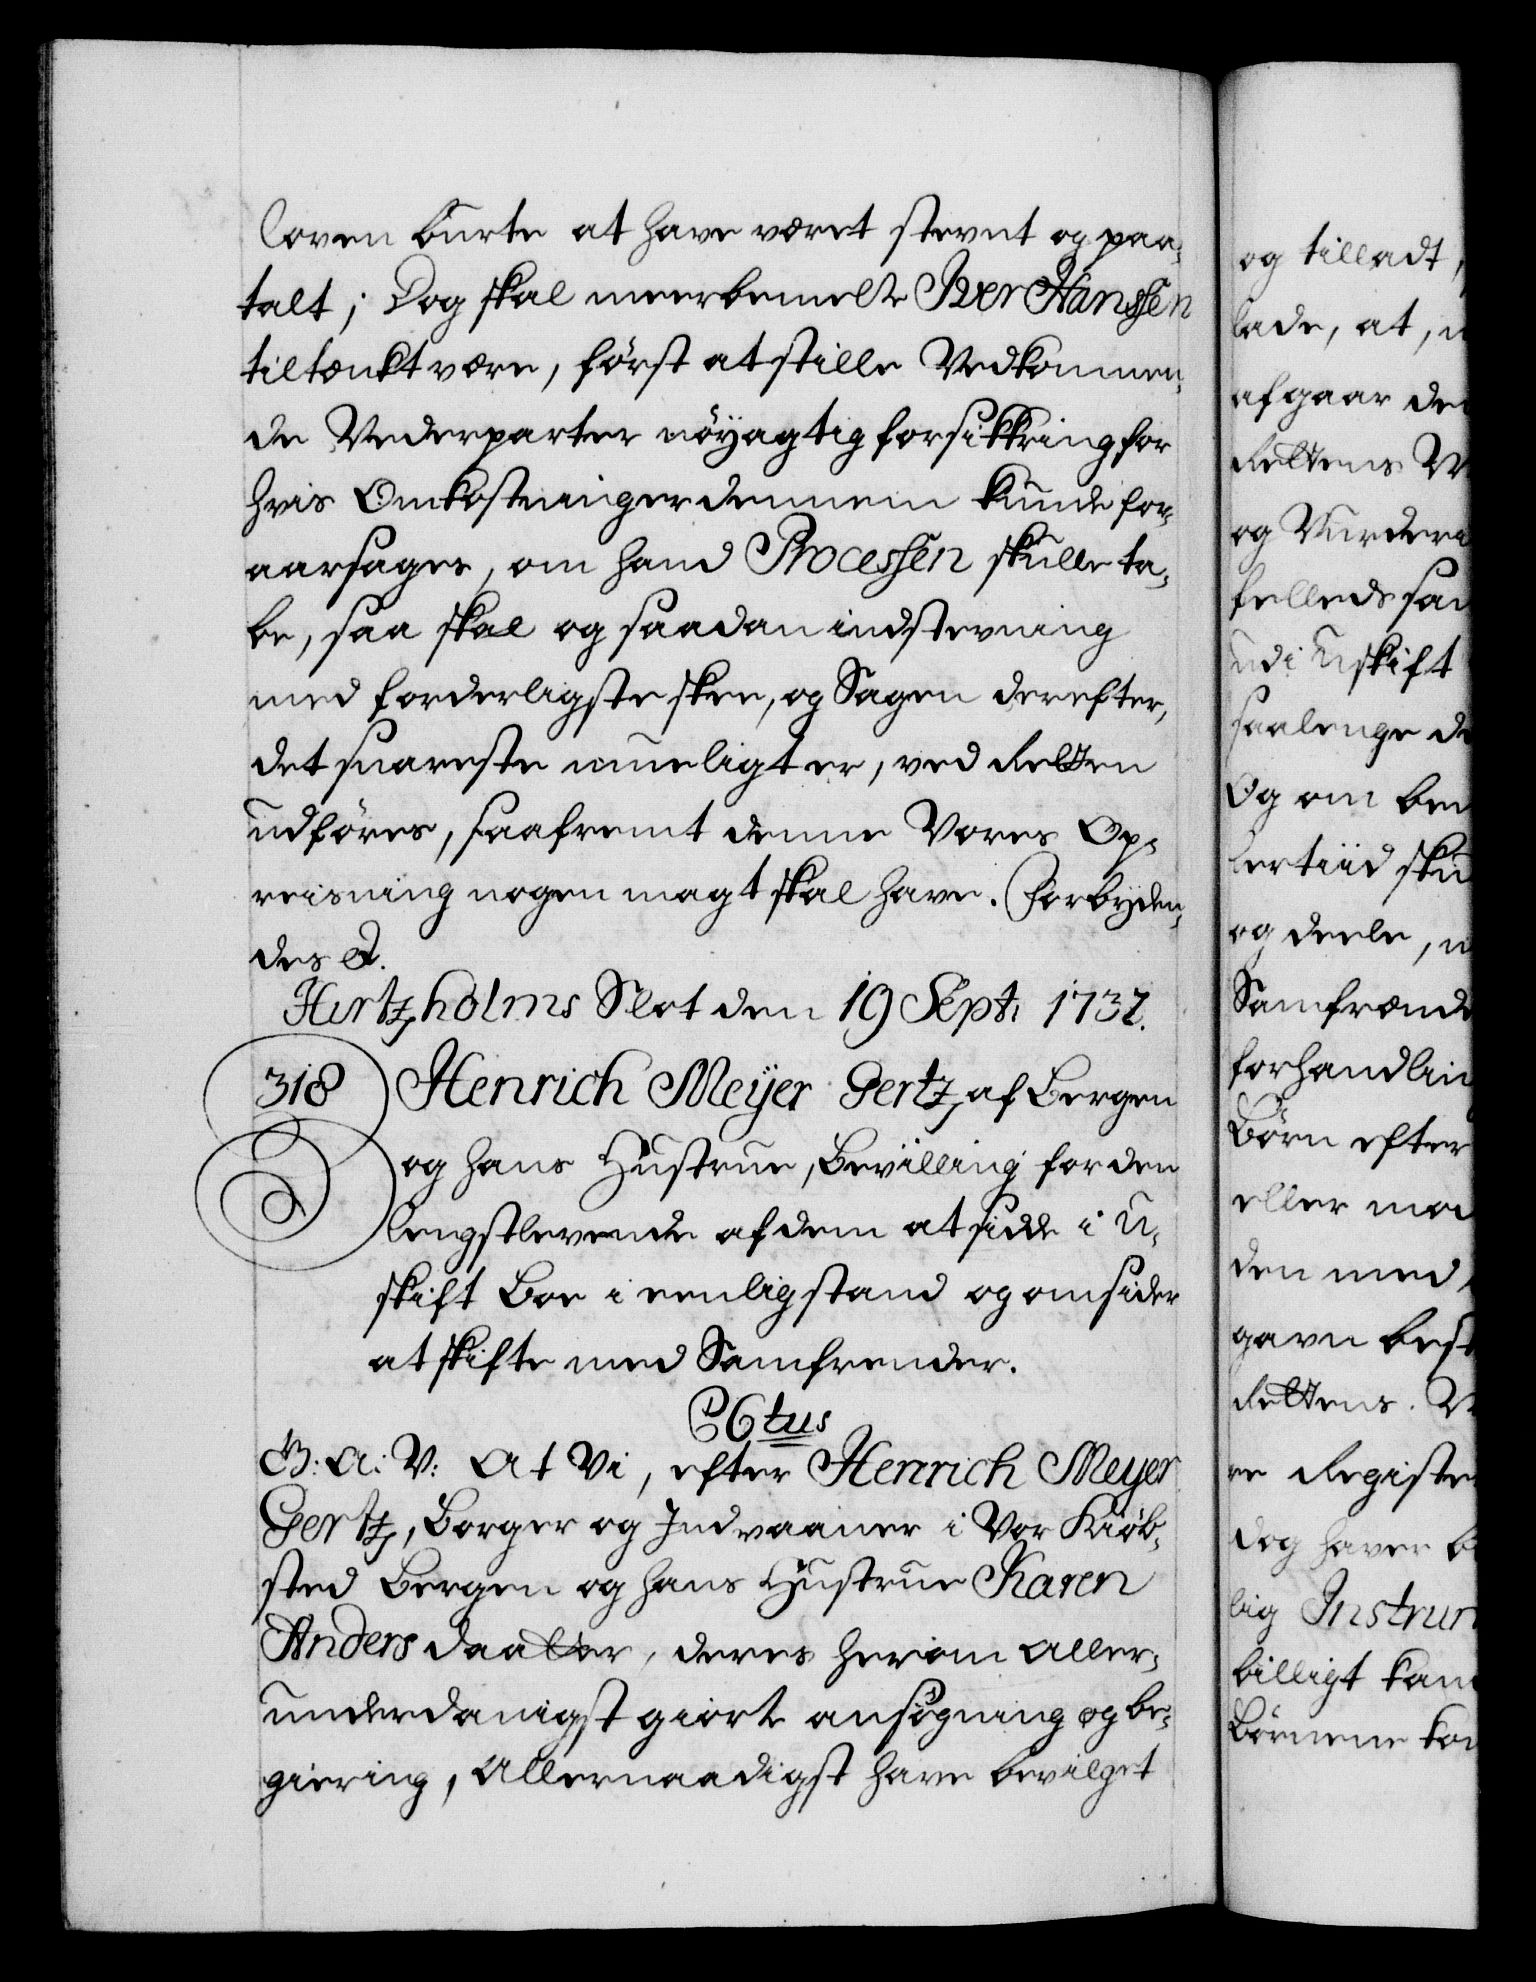 loven burte at have været stevnt og paa-
talt; Dog skal meerbemelte Iver Hanssen
tiltænkt være, först at stille Vedkommen-
de Vederparter nöyagtig forsikkring for
hvis Omkostninger dennem kunde for-
aarsages, om hand Processen skulle ta-
be, saa skal og saadan indstevning
med forderligste skee, og Sagen derefter,
det snareste mueligt er, ved Retten
udföres, saafremt denne Vores Op-
reisning nogen magt skal have. Forbyden-
des &.
Hirtzholms Slot den 19 Sept: 1732.
318 Henrich Meÿer Gertz, af Bergen
og hans Hustrue, Bevilling for den
lengstlevende af dem at sidde i U-
skift Boe i eenlig stand og omsider
at skifte med Samfrender.
C6tus
G: A: V: At Vi, efter Henrich Meyer
Gertz, Borger og Indvaaner i Vor Kiöb-
sted Bergen og hans Hustrue Karen
Anders daatter, deres herom Aller-
underdanigst giorte ansögning og be-
giering, Allernaadigst have bevilget
og tilladt,
lade, at,
afgaar de
Rettens
og Vurder
felleds
udi Uskift
saalenge
Og om
og deele,
Samfrænde
forhandlin
Börn efter
eller
den med
gavn
Rettens.
re Registe
dog haver
lig Instrum
billigt kan
Börnene